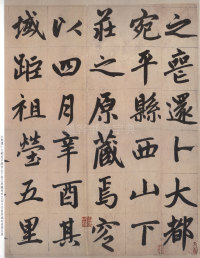 之喪還卜大都
宛平縣西山下
莊之原藏焉㝎
以四月辛酉其
域距祖塋五里